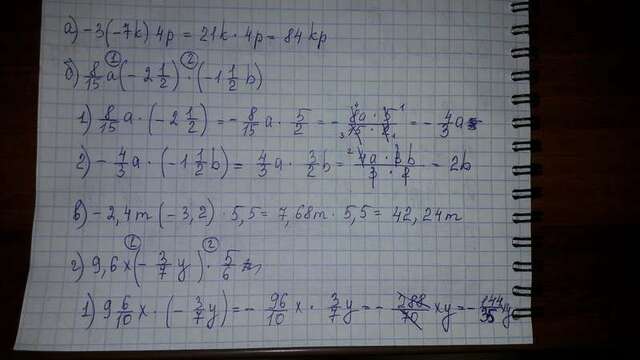 а) -3(-7k) 4p = 21k · 4p = 84 kp
б) 8/15 a (-2 1/2) · (-1 1/2 b)
1) 8/15 a · (-2 1/2) = - 8/15 a · 5/2 = - 8a · 5 / 15 · 2 = - 4/3 a
2) - 4/3 a · (-1 1/2 b) = 4/3 a · 3/2 b = 4a · 3b / 3 · 2 = 2b
в) -2,4m (-3,2) · 5,5 = 7,68m · 5,5 = 42,24m
г) 9,6x (- 3/7 y) · 5/6
1) 9 6/10 x · (- 3/7 y) = - 96/10 x · 3/7 y = - 288/70 xy = - 144/35 xy